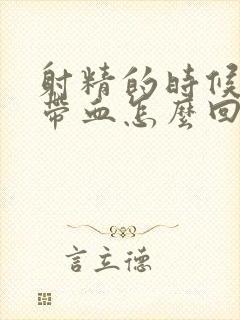 射精的時候
帶血怎麼回
言立德